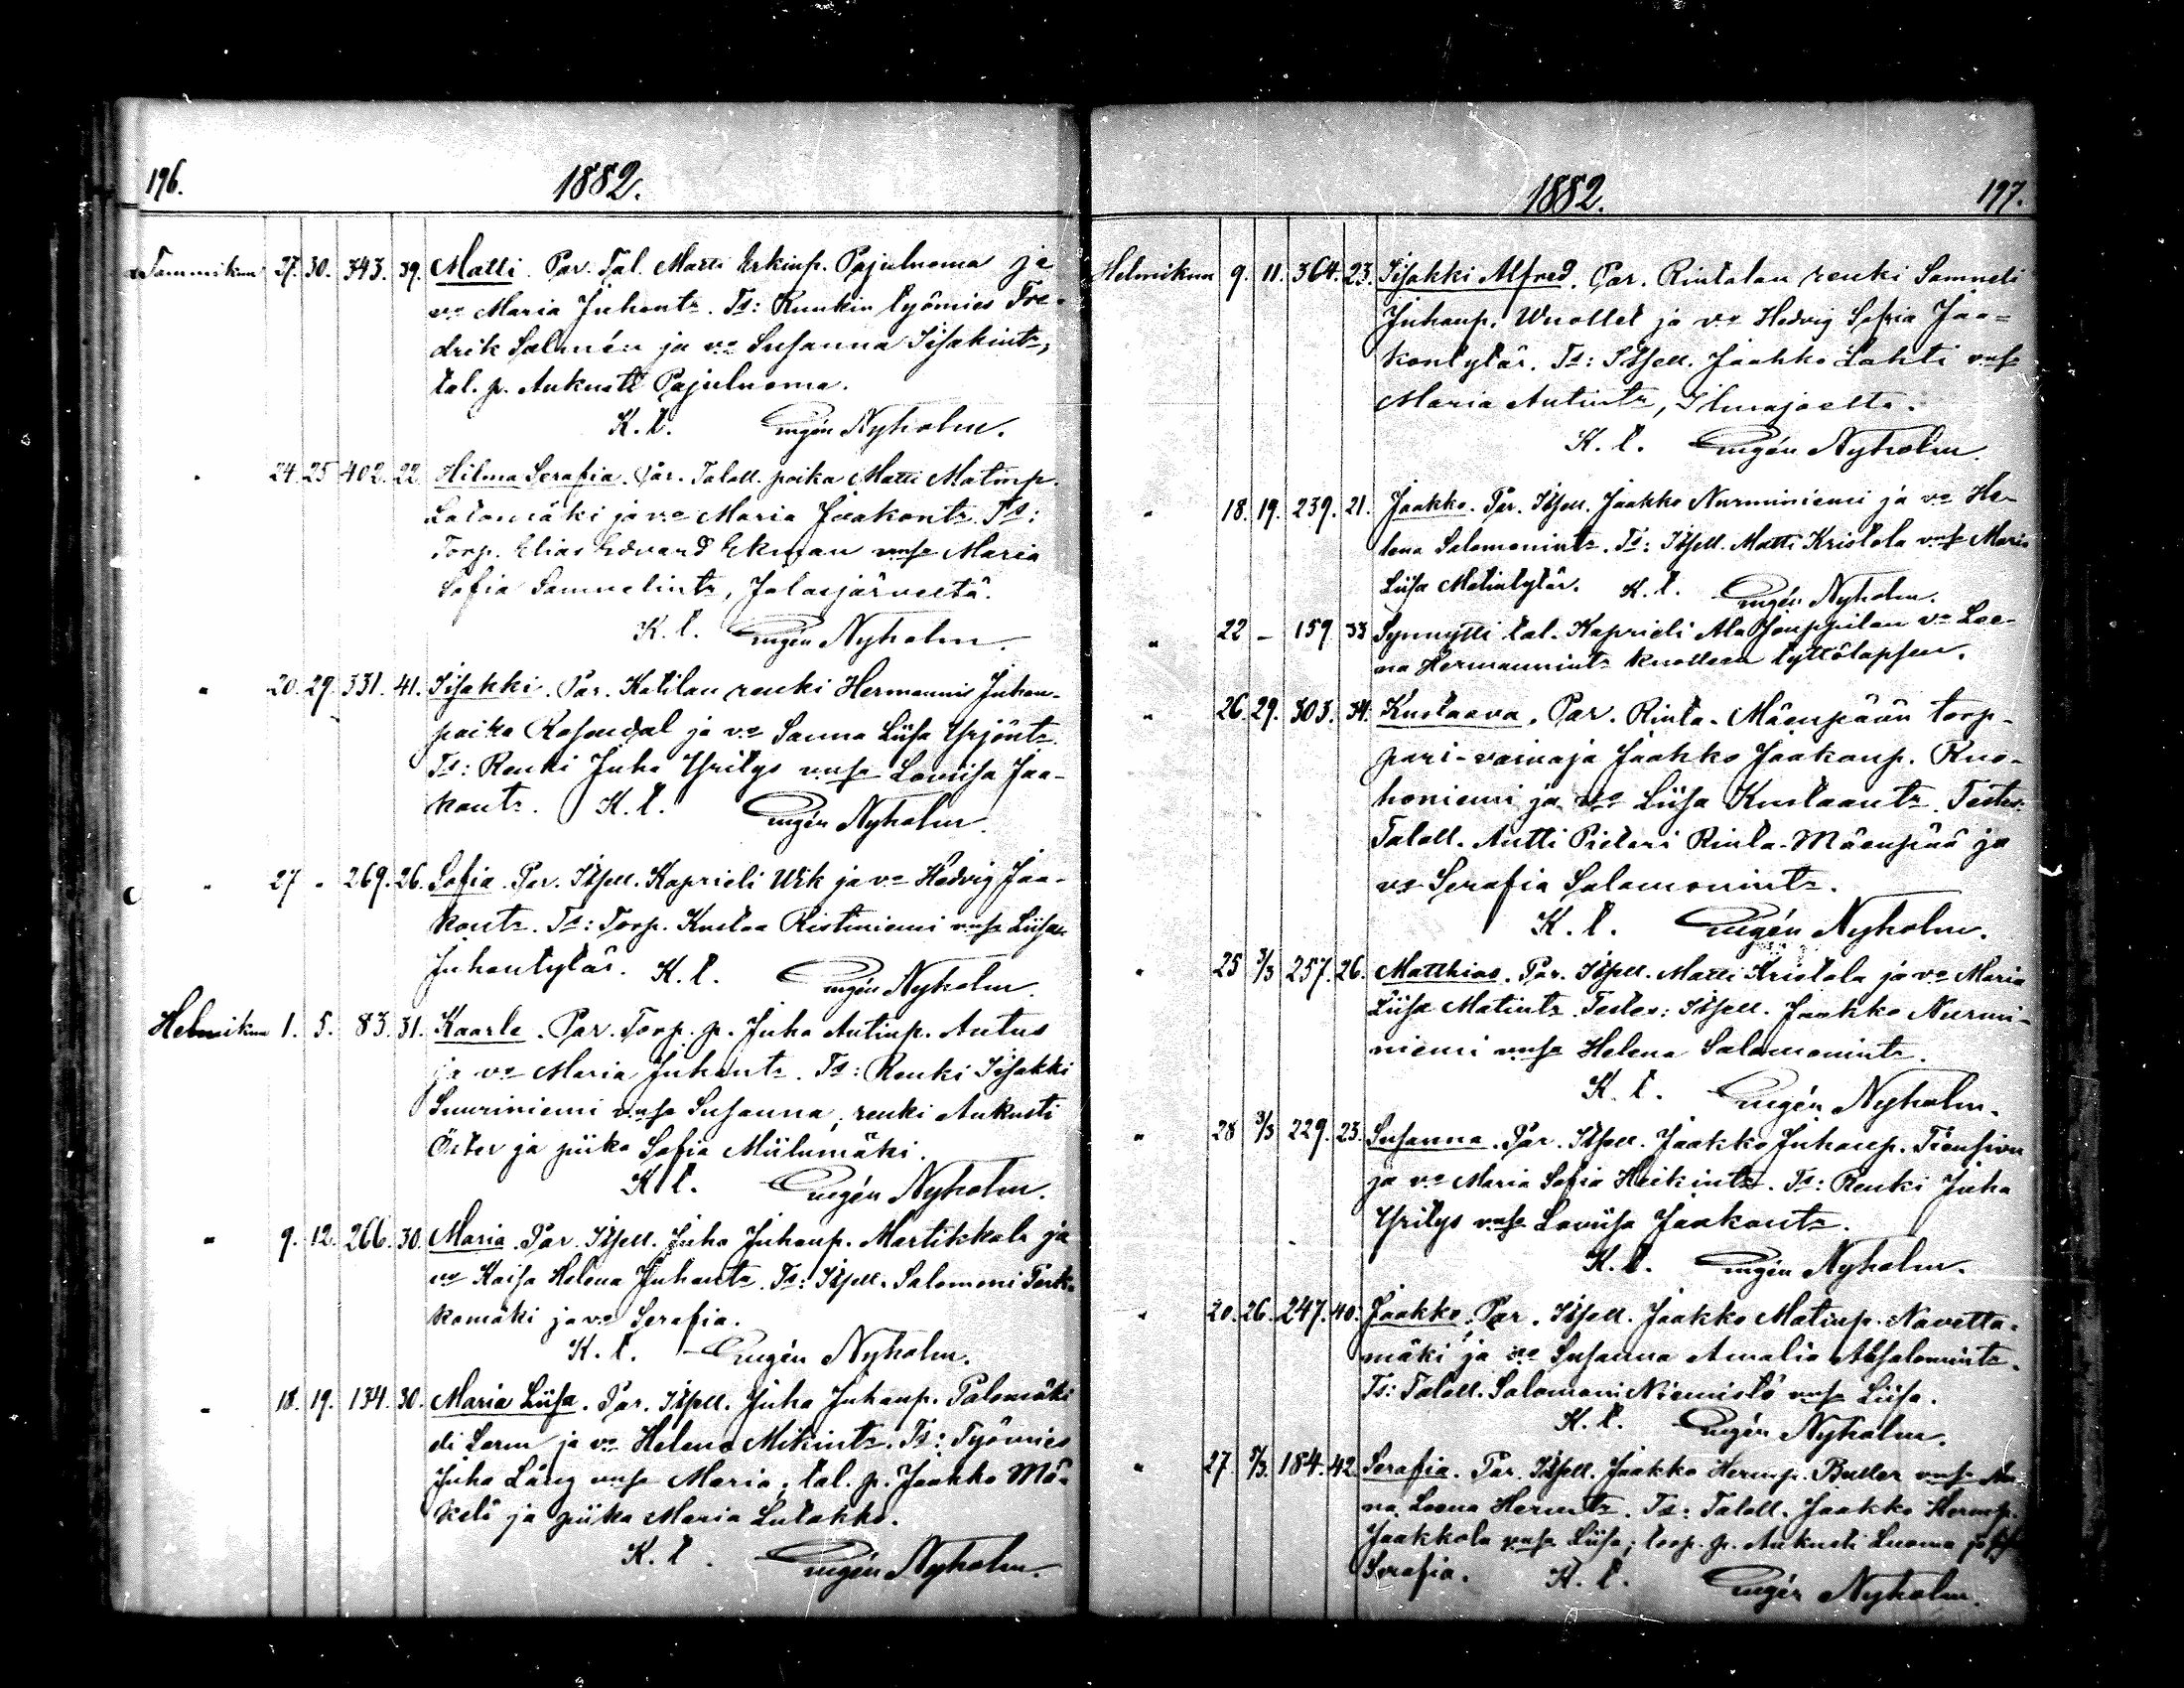 196.
1882.
Tammikuu 27. 30. 343. 39. Matti. Par. Tal. Matti Erkinp. Pajuluoma ja
vo Maria Juhontr. Ts: Ruukin työmies Fre-
drik Salmén ja vo Susanna Iisakintr,
tal. p. Aukusti Pajuluoma.
K. l. Eugén Nyholm.
" 24. 25 402. 22. Hilma Serafia. Par. Taloll. poika Matti Matinp.
Latomäki ja vo Maria Jaakontr. Ts:
Torp. Elias Edvard Ekman vmsa Maria
Sofia Samuelintr, Jalasjärveltä.
K. l. Eugén Nyholm.
" 20. 29. 331. 41. Iisakki. Par. Katilan renki Hermanni Juhon-
poika Rosendal ja vo Sanna Liisa Yrjöntr.
Ts: Renki Juha Yritys vmsa Loviisa Jaa-
kontr. K. l. Eugén Nyholm.
" 27 " 269. 26. Sofia. Par. Itsell. Kaprieli Wik ja vo Hedvig Jaa-
kontr. Ts: Torp. Kustaa Ristiniemi vmsa Liisa
Juhontytär. K. l. Eugén Nyholm.
Helmikuu 1. 5. 83. 31. Kaarle. Par. Torp. p. Juha Antinp. Antus
ja vo Maria Juhontr. Ts: Renki Iisakki
Suuriniemi vmsa Susanna, renki Aukusti
Öster ja piika Sofia Miilumäki.
K. l. Eugén Nyholm.
" 9. 12. 266. 30. Maria. Par. Itsell. Juha Juhonp. Martikkala ja
vo Kaisa Helena Juhontr. Ts: Itsell. Salomoni Perk-
komäki ja vo Serafia.
K. l. Eugén Nyholm.
" 18. 19. 134. 30. Maria Liisa. Par. Itsell. Juha Juhonp. Palomäki
eli Lorm ja vo Helena Mikintr. Ts: Työmies
Juha Lång vmsa Maria, tal. p. Jaakko Mä-
kelä ja piika Maria Lutakko.
K. l. Eugén Nyholm.
1882.
197.
Helmikuu 9. 11. 364. 23. Iisakki Alfred. Par. Rintalan renki Samueli
Juhanp. Wuollet ja vo Hedvig Sofia Jaa-
kontytär. Ts: Itsell. Jaakko Lahti vmsa
Maria Antintr, Ilmajoelta.
K. l. Eugén Nyholm.
" 18. 19. 239. 21. Jaakko. Par. Itsell. Jaakko Nurminiemi ja vo He-
lena Salomonintr. Ts: Itsell. Matti Kristola vmsa Maria
Liisa Matintytär. K. l. Eugén Nyholm.
" 22 – 159. 33 Synnytti tal. Kaprieli Ala Jouppilan vo Lee-
na Hermannintr kuolleen tyttölapsen.
" 26. 29. 303. 34. Kustaava. Par. Rinta-Mäenpään torp-
pari-vainaja Jaakko Jaakonp. Ruo-
honiemi ja vo Liisa Kustaantr. Testes:
Taloll. Antti Pietari Rinta-Mäenpää ja
vo Serafia Salomonintr.
K. l. Eugén Nyholm.
" 25 3/3 257. 26. Matthias. Par. Itsell. Matti Kristola ja vo Maria
Liisa Matintr. Testes: Itsell. Jaakko Nurmi-
niemi vmsa Helena Salomonintr.
K. l. Eugén Nyholm.
" 28 3/3 229. 23. Susanna. Par. Itsell. Jaakko Juhonp. Tiensivu
ja vo Maria Sofia Heikintr. Ts: Renki Juha
Yritys vmsa Loviisa Jaakontr.
K. l. Eugén Nyholm.
" 20. 26. 247. 40. Jaakko. Par. Itsell. Jaakko Matinp. Navetta-
mäki ja vo Susanna Amalia Absalomintr.
Ts: Taloll. Salomoni Niemistö vmsa Liisa.
K. l. Eugén Nyholm.
" 27. 184. 42. Serafia. Par. Itsell. Jaakko Hermp. Buller vmsa
na Leena Hermtr. Ts: Taloll. Jaakko Hermp.
Jaakkola vmsa Liisa; torp. p. Aukusti Luoma ja
Serafia. K. l. Eugén Nyholm.